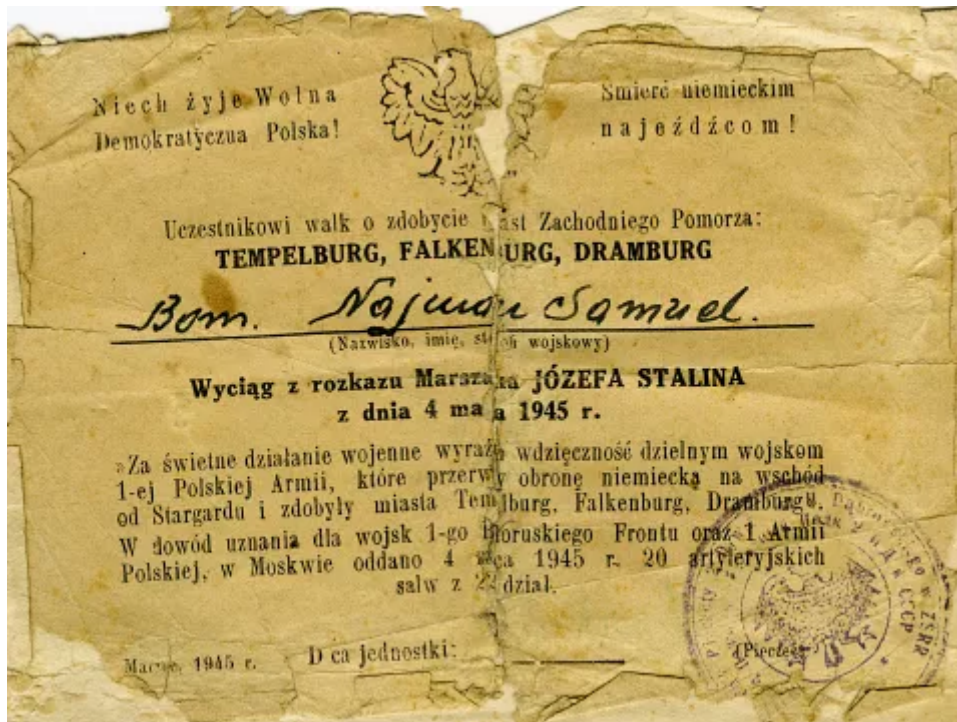 Niech żyje Wolna
Demokratyczna Polska!
Śmierć niemieckim
najeźdźcom!
Uczestnikowi walk o zdobycie miast Zachodniego Pomorza:
TEMPELBURG, FALKENBURG, DRAMBURG
Bom. Najman Samuel.
(Nazwisko, imię, stopień wojskowy)
Wyciąg z rozkazu Marszałka JÓZEFA STALINA
z dnia 4 marca 1945 r.
»Za świetne działanie wojenne wyrażam wdzięczność dzielnym wojskom
1-ej Polskiej Armii, które przerwały obronę niemiecką na wschód
od Stargardu i zdobyły miasta Tempelburg, Falkenburg, Dramburg«.
W dowód uznania dla wojsk 1-go Białoruskiego Frontu oraz 1 Armii
Polskiej, w Moskwie oddano 4 marca 1945 r. 20 artyleryjskich
salw z dział.
Marzec, 1945 r. D-ca jednostki: (Pieczęć)
w ZSRR
СССР